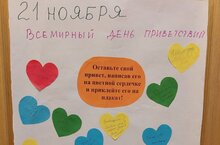 21 НОЯБРЯ
ВСЕМИРНЫЙ ДЕНЬ ПРИВЕТСТВИЙ
Оставьте свой
привет, написав его
на цветной сердечке
и приклейте его на
плакат!